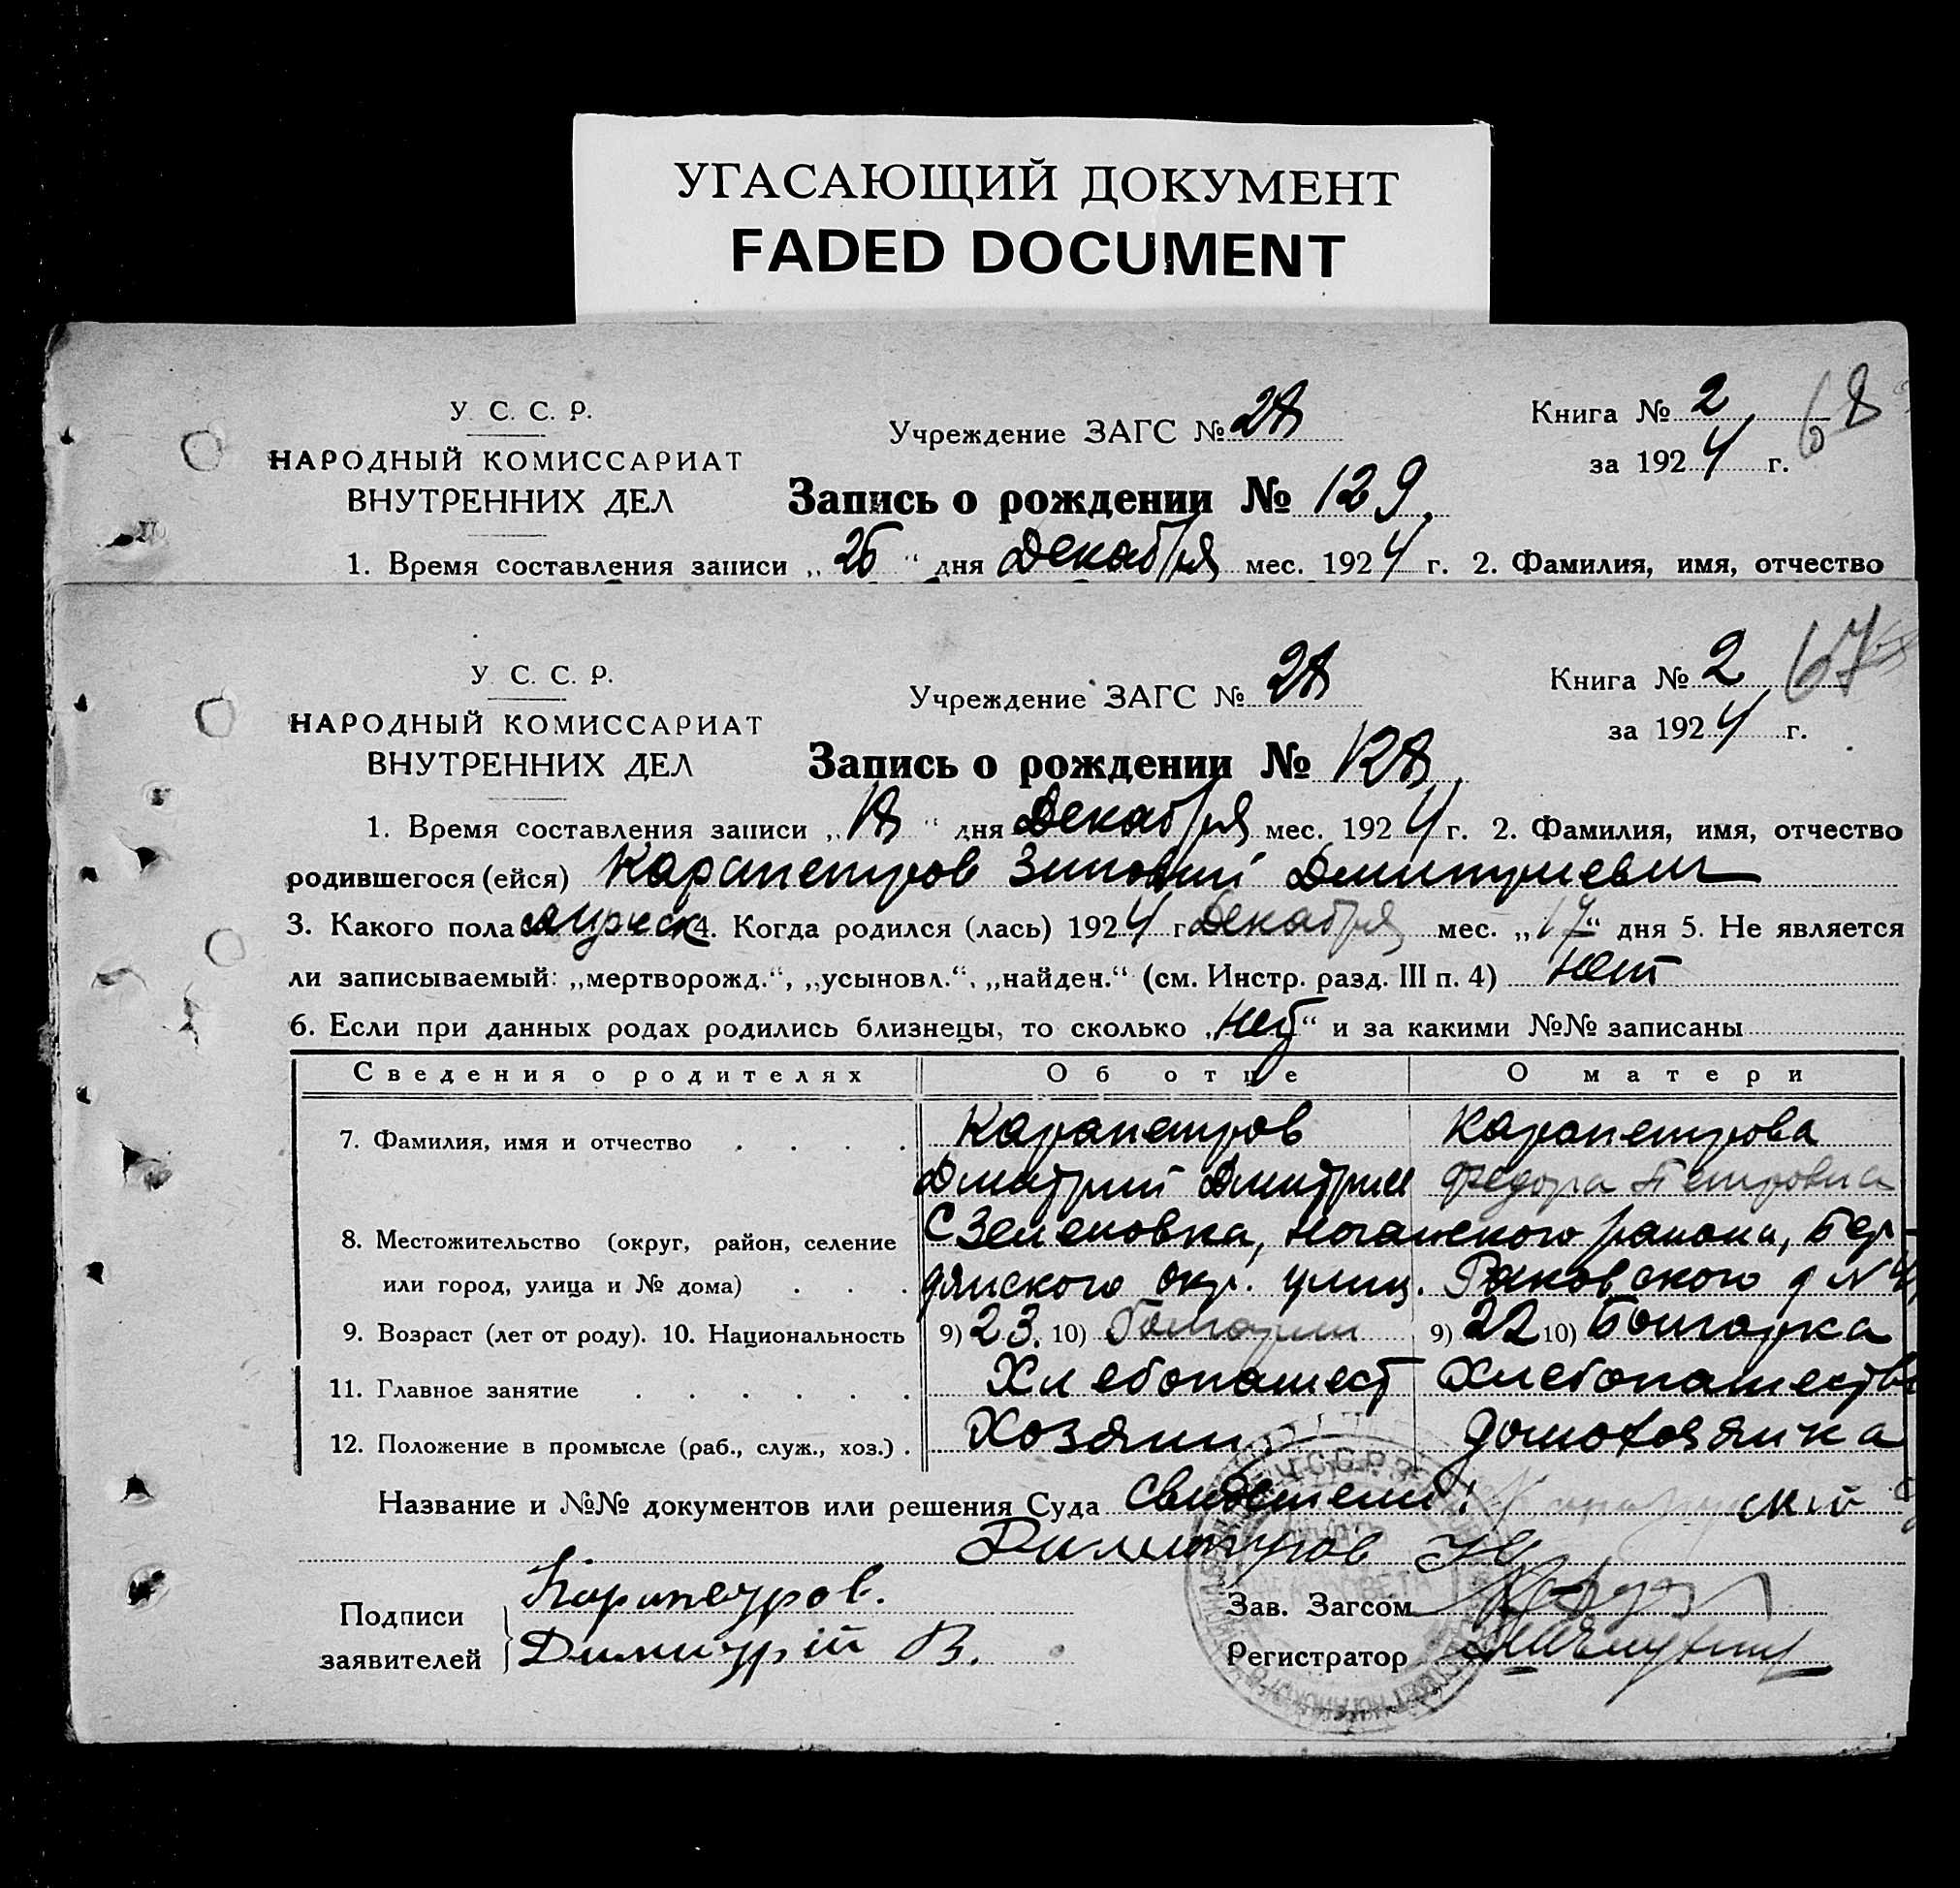 УГАСАЮЩИЙ ДОКУМЕНТ
FADED DOCUMENT
У. С. С. Р.
НАРОДНЫЙ КОМИССАРИАТ
ВНУТРЕННИХ ДЕЛ
Учреждение ЗАГС № 28
Книга № 2
68
за 1924 г.
Запись о рождении № 129
1. Время составления записи „26“ дня Декабря мес. 1924 г. 2. Фамилия, имя, отчество
У. С. С. Р.
НАРОДНЫЙ КОМИССАРИАТ
ВНУТРЕННИХ ДЕЛ
Учреждение ЗАГС № 28
Книга № 2
67
за 1924 г.
Запись о рождении № 128
1. Время составления записи „18“ дня Декабря мес. 1924 г. 2. Фамилия, имя, отчество
родившегося (ейся) Карапетров Зиновий Дмитриевич
3. Какого пола мужск 4. Когда родился (лась) 1924 г Декабря мес. „17“ дня 5. Не является
ли записываемый: „мертворожд.“, „усыновл.“, „найден.“ (см. Инстр. разд. III п. 4) нет
6. Если при данных родах родились близнецы, то сколько „нет“ и за какими №№ записаны
Сведения о родителях Об отце О матери
7. Фамилия, имя и отчество Карапетров Карапетрова
Дматрий Дмитрие Федора Петровна
8. Местожительство (округ, район, селение С Зеленовка, Ногайского района, Бер-
или город, улица и № дома) дянского окр. улиц. Раковского д №
9. Возраст (лет от роду). 10. Национальность 9) 23. 10) Болгарин 9) 22 10) Болгарка
11. Главное занятие Хлебопашест Хлебопашеств
12. Положение в промысле (раб., служ., хоз.) Хозяин домохозяйка
Название и №№ документов или решения Суда Свидетели:
Димитров
Подписи заявителей
Карапетров.
Димитрій В.
Зав. Загсом
Регистратор